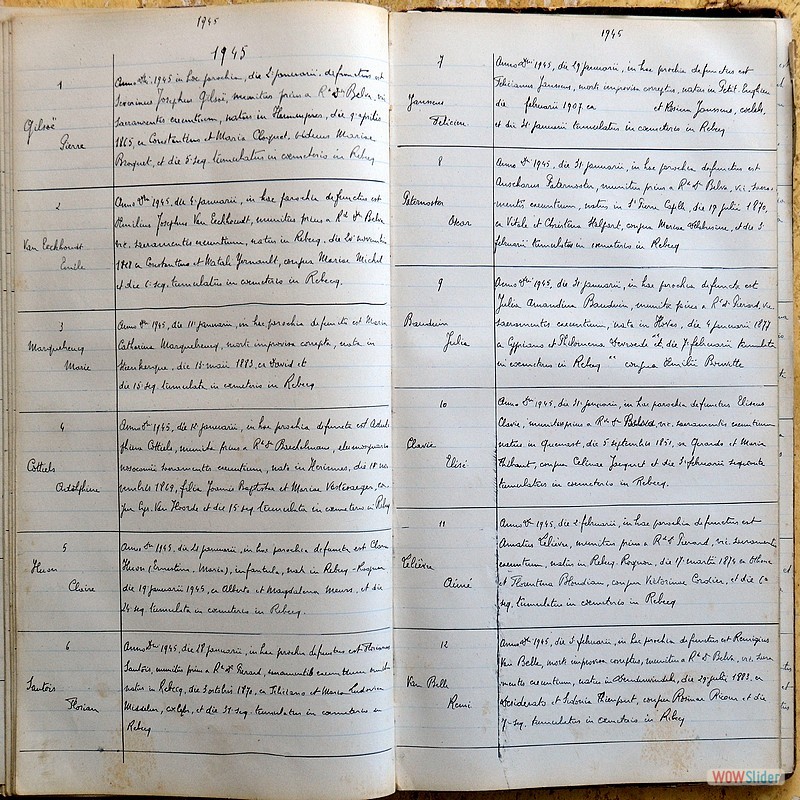 1945
1945
1
Gilsoë
Pierre
Anno Dni 1945 in hac parochia, die 2 januarii, defunctus est
Josephus Gilsoë, munitus prius a Rdo Dno Belva, vic.
sacramentis exeuntium, natus in Hennuyeres, die 9 aprilis
1865, ex Constantino et Maria Cloquet, viduus Mariae
Bruquet, et die 5 seq. tumulatus in coemeterio in Rebecq
2
Van Eeckhoudt
Emile
Anno Dni 1945, die 4 januarii, in hac parochia defunctus est
Emilius Josephus Van Eeckhoudt, munitus prius a Rdo Dno Belva
vic. sacramentis exeuntium, natus in Rebecq, die 20 novembris
ex Constantino et Natali Fernault, conjux Mariae Michel
et die 6 seq. tumulatus in coemeterio in Rebecq.
3
Marquebreucq
Marie
Anno Dni 1945, die 11 januarii, in hac parochia defuncta est Maria
Catharina Marquebreucq, morte improvisa correpta, nata in
die 15 maii 1873, ex David et
die 15 seq. tumulata in coemeterio in Rebecq.
4
Cottiels
Adolphine
Anno Dni 1945, die 12 januarii, in hac parochia defuncta est Adol-
phina Cottiels, munita prius a Rdo Dno Bachelman, eleemosynario
nosocomii sacramentis exeuntium, nata in Herinnes, die 18 no-
vembris 1869, filia Joannis Baptistae et Mariae con-
jux Cyr. Van Hoorde et die 15 seq. tumulata in coemeterio in Rebecq
5
Huon
Claire
Anno Dni 1945, die 21 januarii, in hac parochia defuncta est Clara
Huon (Ernestina, Maria), infantula, nata in Rebecq-Rognon
die 19 januarii 1945, ex Alberto et Magdalena Meurs, et die
24 seq. tumulata in coemeterio in Rebecq.
6
Santois
Florian
Anno Dni 1945, die 28 januarii, in hac parochia defunctus est Florianus
Santois, munitus prius a Rdo Dno Pierard, sacramentis exeuntium
natus in Rebecq, die 3 octobris 1870, ex Feliciano et Maria Ludovica
Messelen, caelebs, et die 31 seq. tumulatus in coemeterio in
Rebecq
1945
7
Janssens
Felicien
Anno Dni 1945, die 29 januarii, in hac parochia defunctus est
Felicianus Janssens, morte improvisa correptus, natus in Petit-Enghien
die februarii 1907, ex et Rosina Janssens, caelebs,
et die 31 januarii tumulatus in coemeterio in Rebecq
8
Paternostre
Oscar
Anno Dni 1945, die 31 januarii, in hac parochia defunctus est
Anscharius Paternoster, munitus prius a Rdo Dno Belva, vic. sacra-
mentis exeuntium, natus in St Pierre Capelle, die 19 julii 1870,
ex Vitale et Christina Halfort, conjux Mariae et die 3
februarii tumulatus in coemeterio in Rebecq
9
Bauduin
Julia
Anno Dni 1945, die 31 januarii, in hac parochia defuncta est
Julia Amandina Bauduin, munita prius a Rdo Dno Pierard, vic.
sacramentis exeuntium, nata in Hoves, die 4 januarii 1877
ex Cypriano et Philomena et die 7 februarii tumulata
in coemeterio in Rebecq conjux Emilii
10
Clavie
Elisé
Anno Dni 1945, die 31 januarii, in hac parochia defunctus Eliseus
Clavie, munitus prius a Rdo Dno vic. sacramentis exeuntium
natus in Quenast, die 5 septembris 1851, ex Gerardo et Maria
Thibaut, conjux Celinae Jacquet et die 3 februarii sequentis
tumulatus in coemeterio in Rebecq.
11
Lelièvre
Aimé
Anno Dni 1945, die 2 februarii, in hac parochia defunctus est
Amatus Lelièvre, munitus prius a Rdo Dno Pierard, vic. sacramentis
exeuntium, natus in Rebecq-Rognon, die 17 martii 1874 ex
et Florentina Blondiau, conjux Victorinae Cordier, et die 6a
seq. tumulatus in coemeterio in Rebecq
12
Van Belle
Remi
Anno Dni 1945, die 3 februarii, in hac parochia defunctus est Remigius
Van Belle, morte improvisa correptus, munitus a Rdo Dno Belva, vic. sacra-
mentis exeuntium, natus in Denderwindeke, die 29 julii 1883, ex
Desiderato et Sidonia conjux Rosinae et die
7 seq. tumulatus in coemeterio in Rebecq
WOWSlider